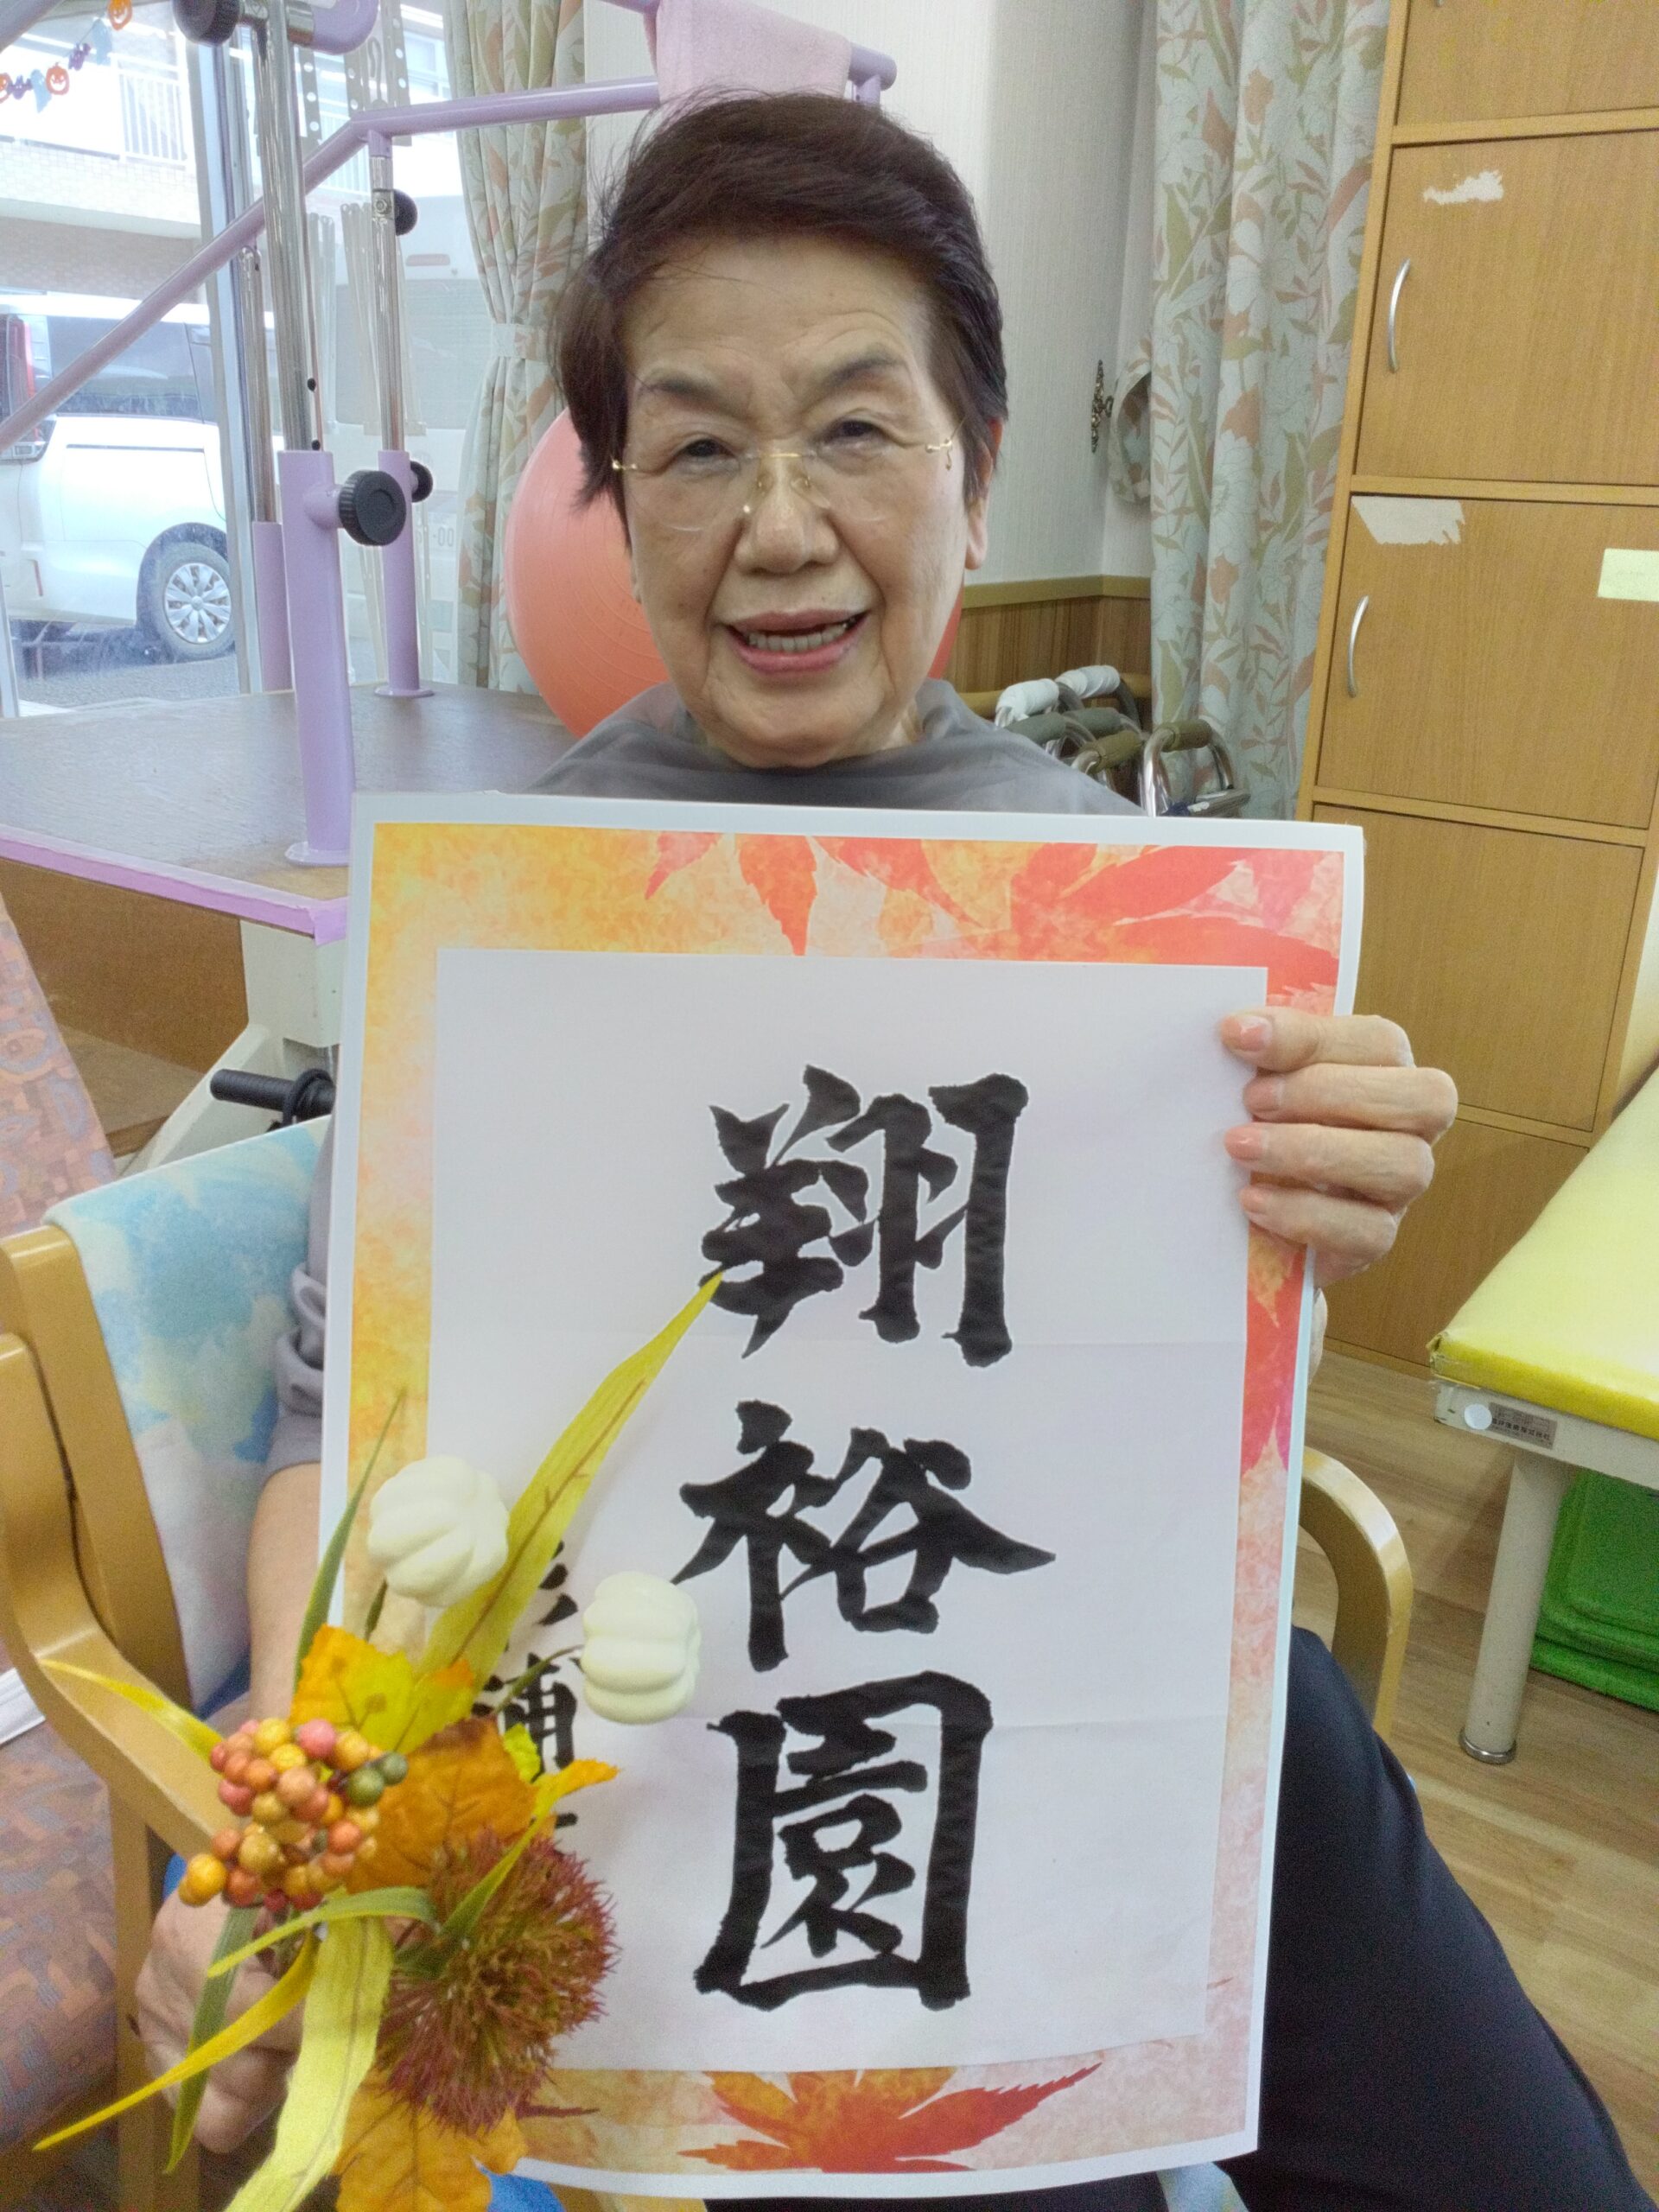 翔裕園